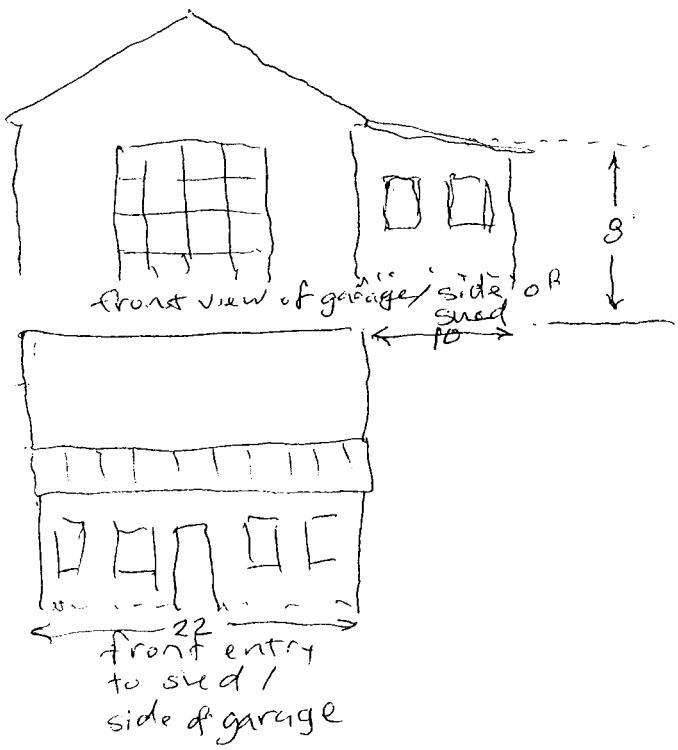 8
front view of garage/ side of
shed
10
22
front entry
to shed /
side of garage